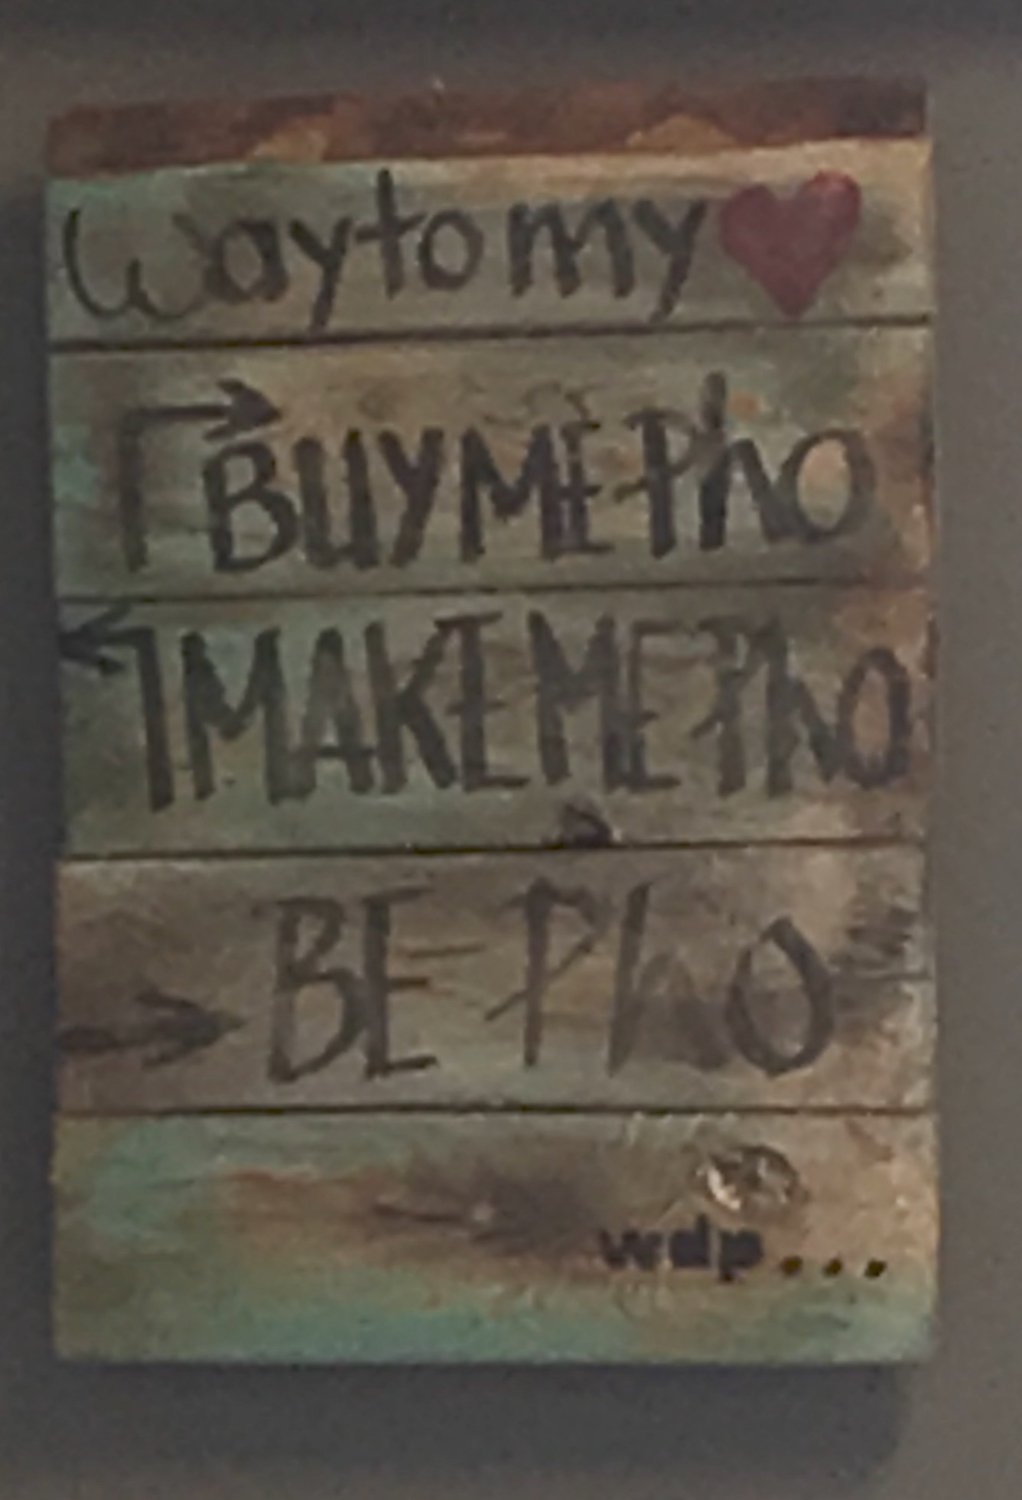 Way to my
BUY ME Pho
MAKE ME Pho
BE Pho
wdp...